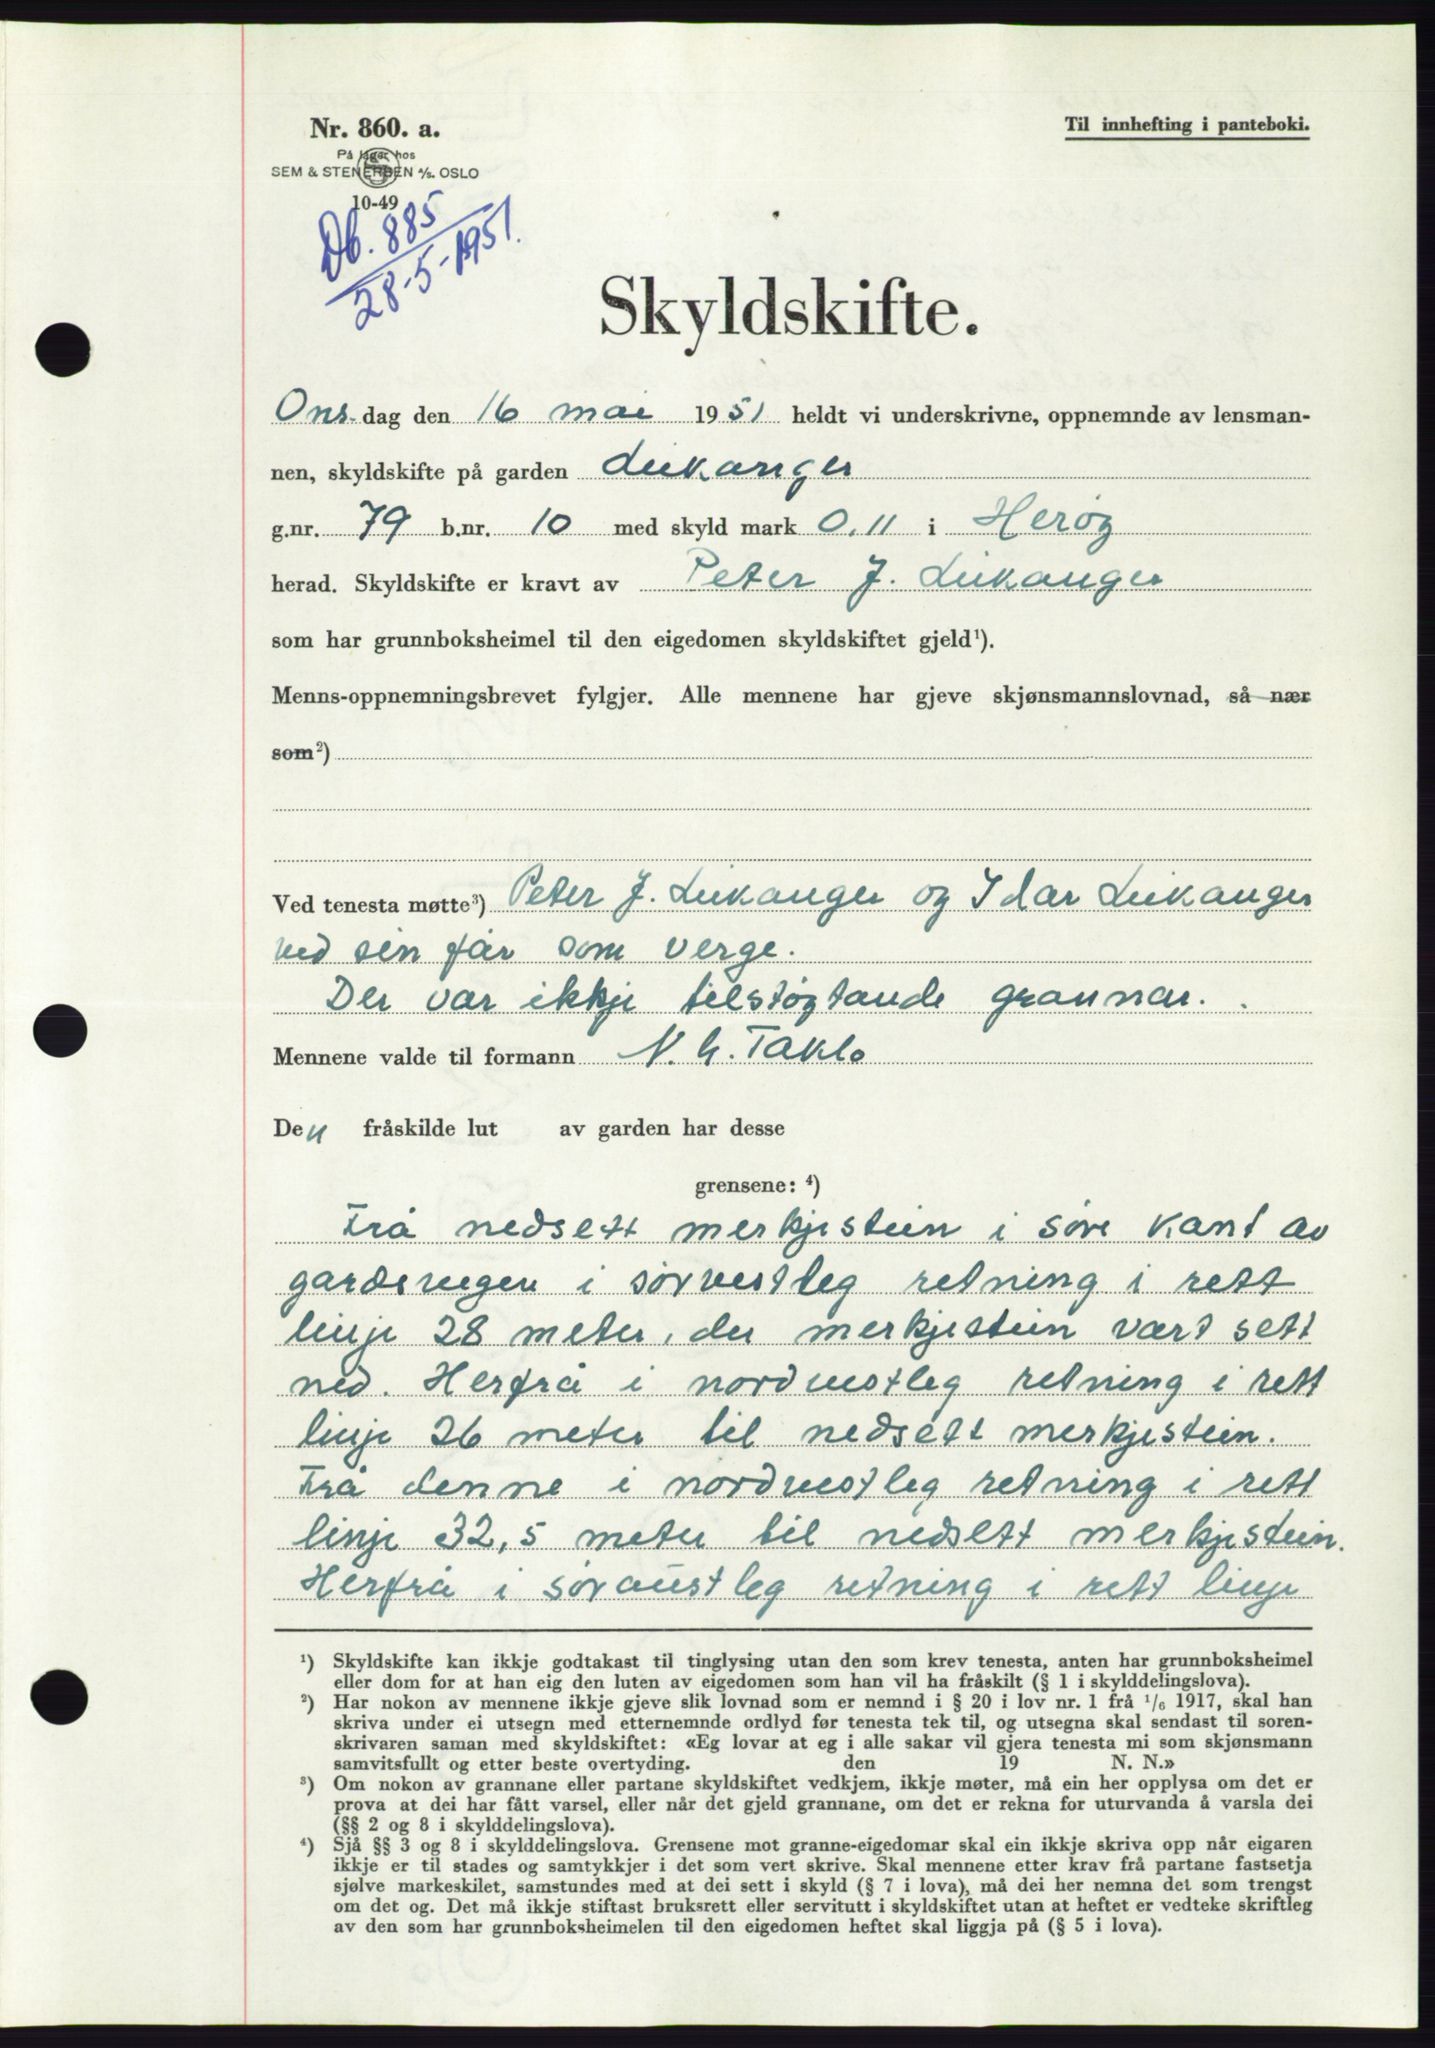 Nr. 860. a.
Til innhefting i panteboki.
På lager hos
SEM & STENERSEN A/S. OSLO
10-49
Db. 885
28-5-1951.
Skyldskifte.
Onsdag den 16 mai 1951 heldt vi underskrivne, oppnemnde av lensman-
nen, skyldskifte på garden Leikanger
g.nr. 79 b.nr. 10 med skyld mark 0,11 i Herøy
herad. Skyldskifte er kravt av Peter J. Leikanger
som har grunnboksheimel til den eigedomen skyldskiftet gjeld¹).
Menns-oppnemningsbrevet fylgjer. Alle mennene har gjeve skjønsmannslovnad, så nær
som²)
Ved tenesta møtte³) Peter J. Leikanger og Idar Leikanger
ved sin far som verge.
Der var ikkje tilstøytande grannar.
Mennene valde til formann N. G. Taklo
Den fråskilde lut av garden har desse
grensene: ⁴)
Frå nedsett merkjestein i søre kant av
gardsvegen i sørvestleg retning i rett
linje 28 meter, der merkjestein vart sett
ned. Herfrå i nordvestleg retning i rett
linje 26 meter til nedsett merkjestein.
Frå denne i nordvestleg retning i rett
linje 32,5 meter til nedsett merkjestein.
Herfrå i søraustleg retning i rett linje
¹) Skyldskifte kan ikkje godtakast til tinglysing utan den som krev tenesta, anten har grunnboksheimel
eller dom for at han eig den luten av eigedomen som han vil ha fråskilt (§ 1 i skylddelingslova).
²) Har nokon av mennene ikkje gjeve slik lovnad som er nemnd i § 20 i lov nr. 1 frå ¹/₆ 1917, skal han
skriva under ei utsegn med etternemnde ordlyd før tenesta tek til, og utsegna skal sendast til soren-
skrivaren saman med skyldskiftet: «Eg lovar at eg i alle sakar vil gjera tenesta mi som skjønsmann
samvitsfullt og etter beste overtyding. den 19 N. N.»
³) Om nokon av grannane eller partane skyldskiftet vedkjem, ikkje møter, må ein her opplysa om det er
prova at dei har fått varsel, eller når det gjeld grannane, om det er rekna for uturvanda å varsla dei
(§§ 2 og 8 i skylddelingslova).
⁴) Sjå §§ 3 og 8 i skylddelingslova. Grensene mot granne-eigedomar skal ein ikkje skriva opp når eigaren
ikkje er til stades og samtykkjer i det som vert skrive. Skal mennene etter krav frå partane fastsetja
sjølve markeskilet, samstundes med at dei sett i skyld (§ 7 i lova), må dei her nemna det som trengst
om det og. Det må ikkje stiftast bruksrett eller servitutt i skyldskiftet utan at heftet er vedteke skriftleg
av den som har grunnboksheimelen til den eigedomen heftet skal liggja på (§ 5 i lova).